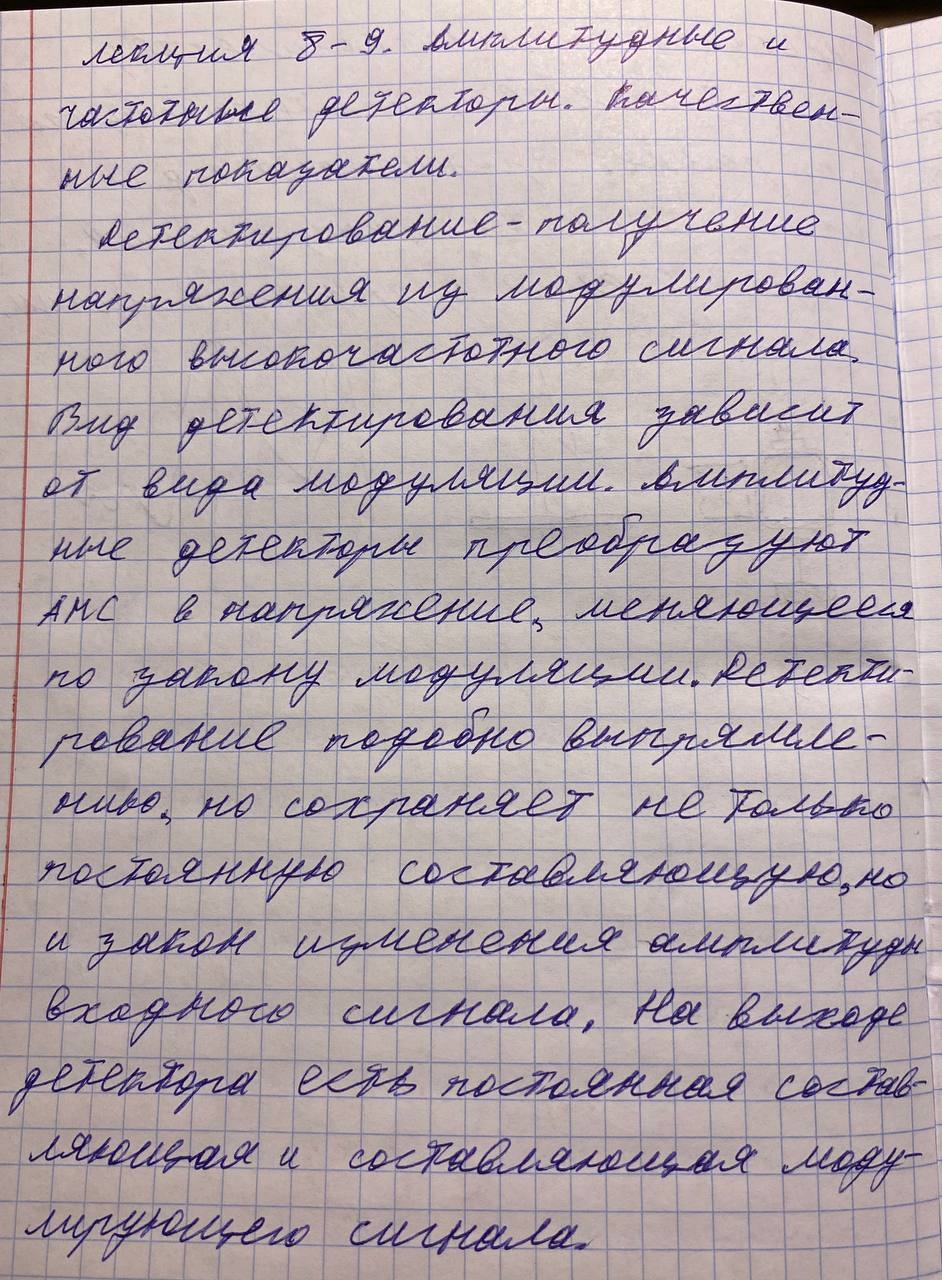 лекция 8-9. Амплитудные и
частотные детекторы. Качествен-
ные показатели.
Детектирование - получение
напряжения из модулирован-
ного высокочастотного сигнала.
Вид детектирования зависит
от вида модуляции. Амплитуд-
ные детекторы преобразуют
АМС в напряжение, меняющееся
по закону модуляции. Детекти-
рование подобно выпрямле-
нию, но сохраняет не только
постоянную составляющую, но
и закон изменения амплитуды
входного сигнала. На выходе
детектора есть постоянная состав-
ляющая и составляющая моду-
лирующего сигнала.